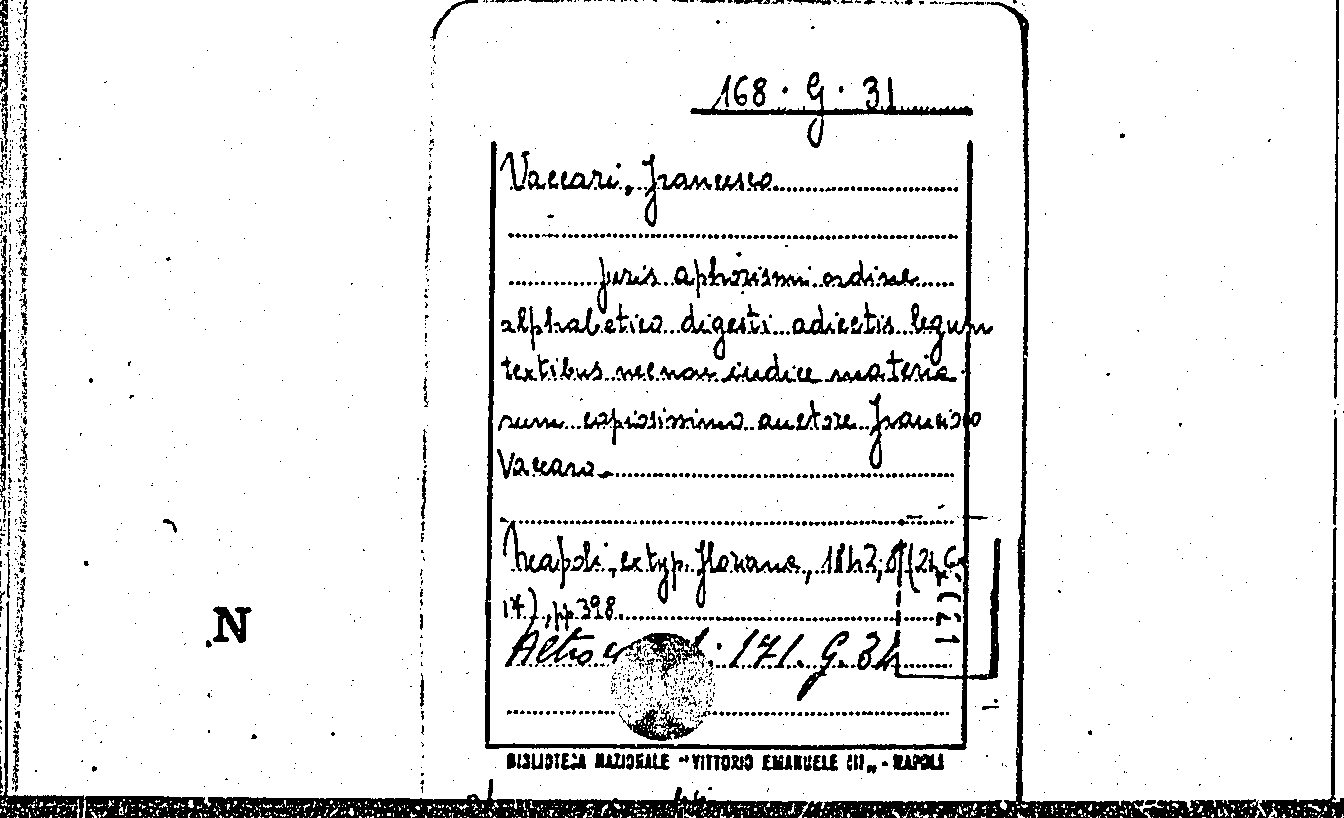 168 · G · 31
Vaccari, Francesco
Juris aphorismi ordine
alphabetico digesti adiectis legum
textibus necnon indice materia
rum copiosissimo auctore Francisco
Vaccaro
Napoli, ex typ. Floriana, 1842, 8° (24,
17), pp. 398.
Altro 171. G. 34
N
BIBLIOTECA NAZIONALE "VITTORIO EMANUELE III„ - NAPOLI